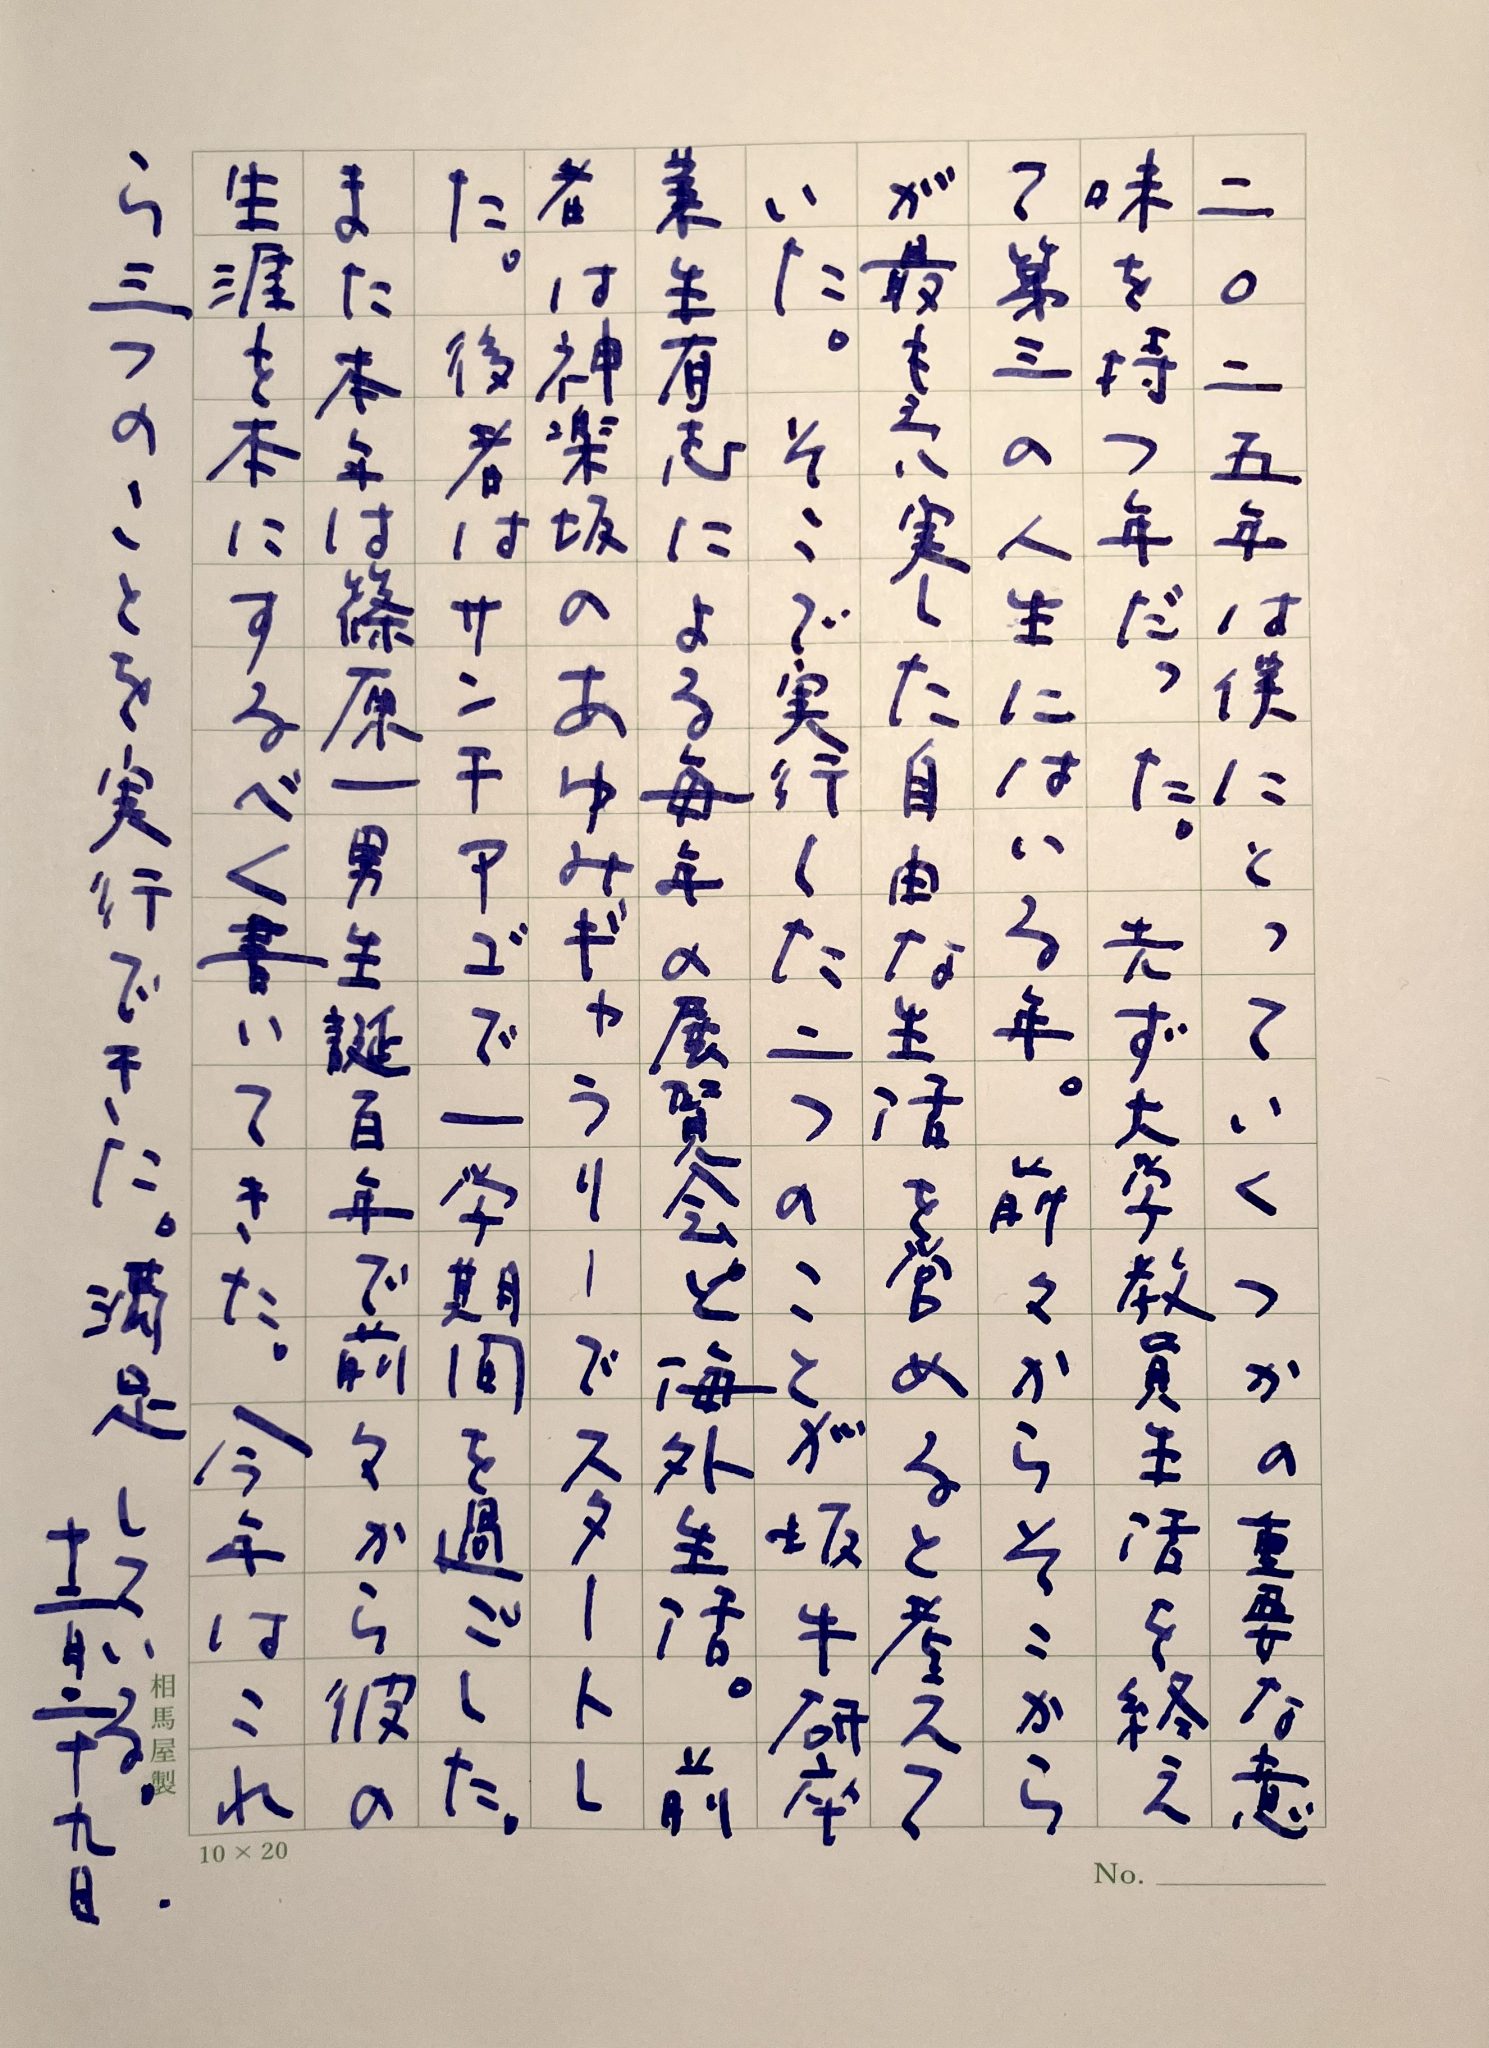 二〇二五年は僕にとっていくつかの重要な意
味を持つ年だった。先ず大学教員生活を終え
て第三の人生にはいる年。前々からそこから
が最も充実した自由な生活を営めると考えて
いた。そこで実行した二つのことが坂牛研卒
業生有志による毎年の展覧会と海外生活。前
者は神楽坂のあゆみギャラリーでスタートし
た。後者はサンチアゴで一学期間を過ごした。
また本年は篠原一男生誕百年で前々から彼の
生涯を本にするべく書いてきた。今年はこれ
ら三つのことを実行できた。満足している。
十二月二十九日
相馬屋製
10×20
No.